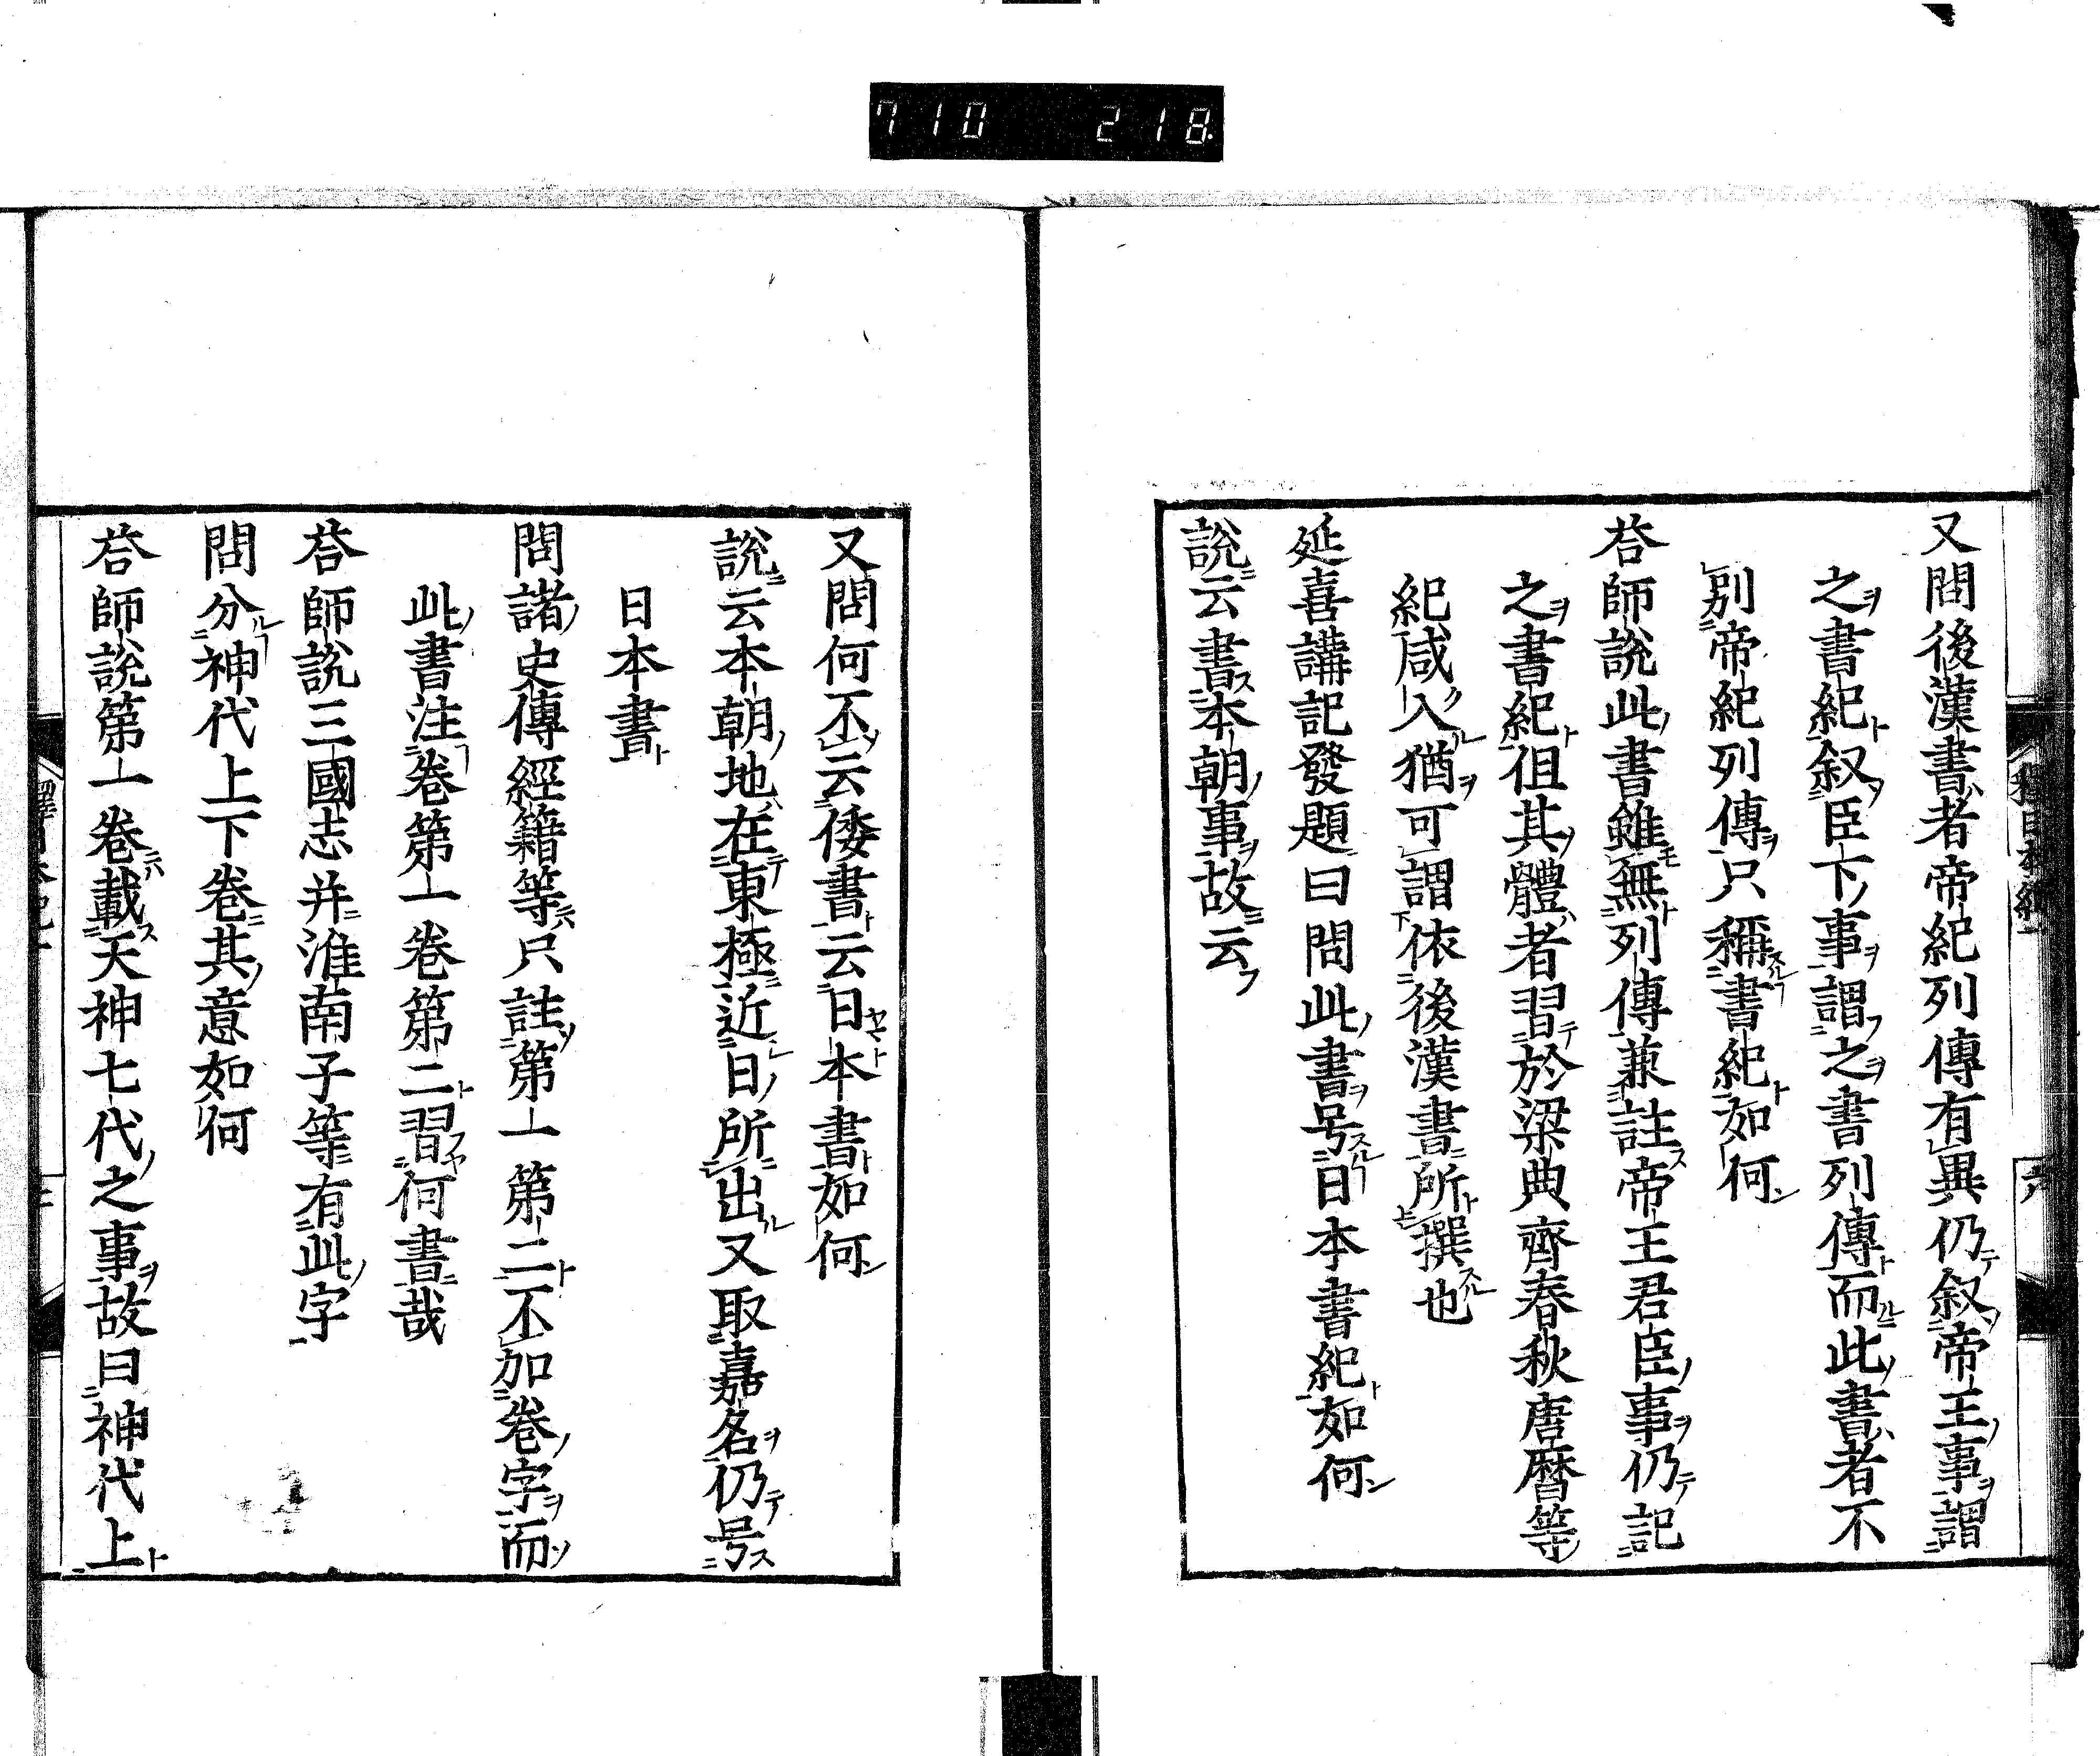 710 218
又問後漢書者帝紀列傳有異仍叙帝王事謂
之書紀叙臣下事謂之書列傳而此書者不
別帝紀列傳只稱書紀如何
荅師說此書雖無列傳兼註帝王君臣事仍記
之書紀但其體者習於梁典齊春秋唐暦等
紀咸入猶可謂依後漢書所撰也
延喜講記發題曰問此書号日本書紀如何
說云書本朝事故云フ
又問何不云倭書云日本書如何
說云本朝地在東極近日所出又取嘉名仍号
日本書
問諸史傳經籍等只註第一第二不加卷字而
此書注卷第一卷第二習何書哉
荅師說三國志并淮南子等有此字
問分神代上下卷其意如何
荅師說第一卷載天神七代之事故曰神代上